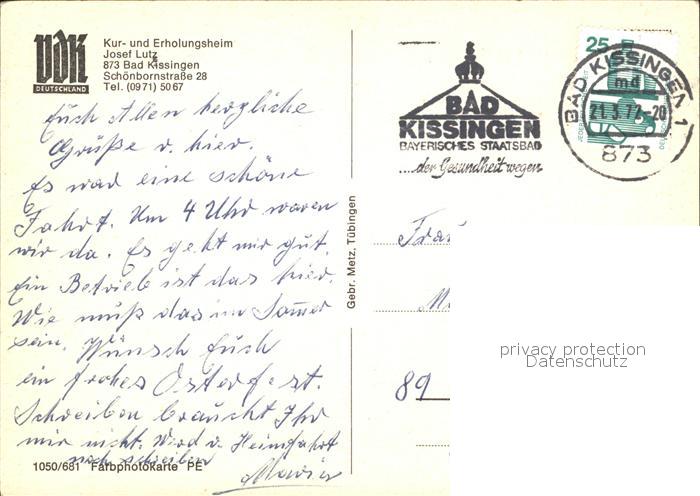 VdK
DEUTSCHLAND
Kur- und Erholungsheim
Josef Lutz
873 Bad Kissingen
Schönbornstraße 28
Tel. (0971) 5067
Euch Allen herzliche
Grüße v. hier.
Es war eine schöne
Fahrt. Um 4 Uhr waren
wir da. Es geht mir gut.
Ein Betrieb ist das hier.
Wie muß das im Sommer
sein. Wünsch Euch
ein frohes Osterfest.
Schreiben braucht Ihr
mir nicht. Wird v. Heimfahrt
noch schreiben
Maria
1050/681 Farbphotokarte PE
Gebr. Metz, Tübingen
BAD
KISSINGEN
BAYERISCHES STAATSBAD
...der Gesundheit wegen
25
BAD KISSINGEN 1
md
21.3.72-20
873
Frau
89
privacy protection
Datenschutz